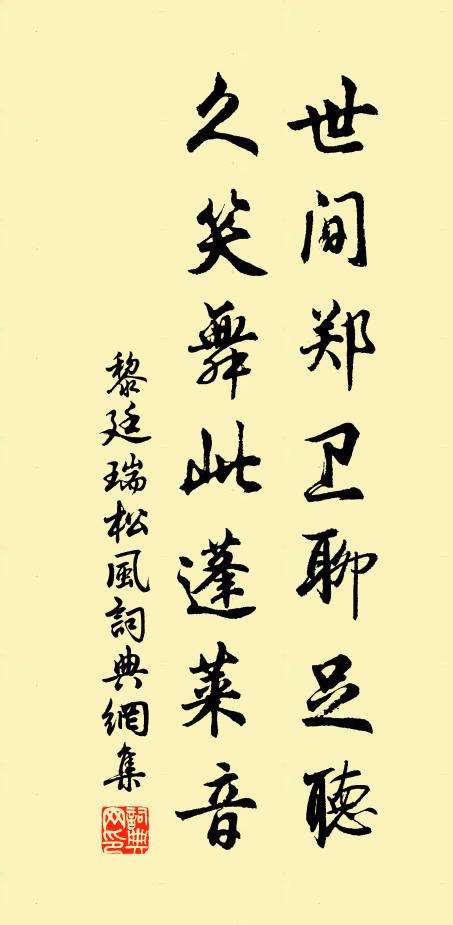 世间郑卫聊足听
久笑舞此蓬莱音
黎廷瑞松風詞典網集
詞典网印